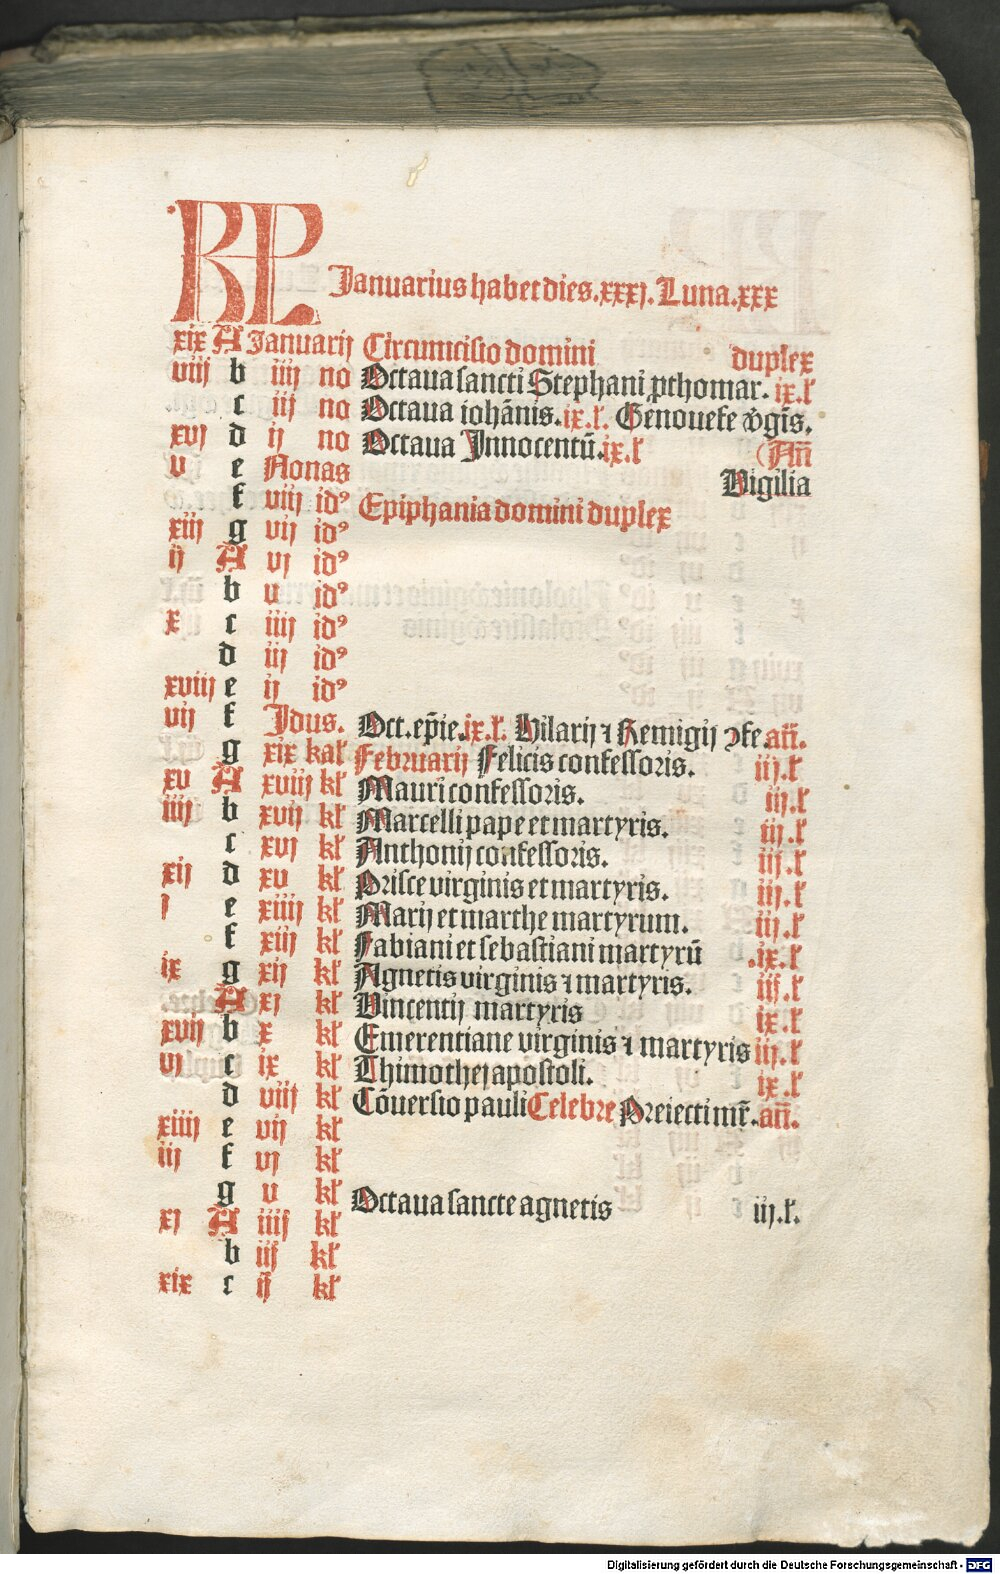 KL Januarius habet dies.xxxj.Luna.xxx
xix A Januarij Circumcisio domini duplex
viij b iiij no Octaua sancti Stephani ꝓthomar. ix.ł
c iij no Octaua iohānis.ix.ł. Genouefe v̄gīs.
xvj d ij no Octaua Innocentū.ix.ł (Añ
v e Nonas Vigilia
f viij idꝰ Epiphania domini duplex
xiij g vij idꝰ
ij A vj idꝰ
b v idꝰ
x c iiij idꝰ
d iij idꝰ
xviij e ij idꝰ
vij f Jdus. Oct.ep̄ie.ix.ł. Hilarij ⁊ Remigij ꝯfe.añ.
g xix kał Februarij Felicis confessoris. iij.ł
xv A xviij kł Mauri confessoris. iij.ł
iiij b xvij kł Marcelli pape et martyris. iij.ł
c xvj kł Anthonij confessoris. iij.ł
xij d xv kł Prisce virginis et martyris. iij.ł
j e xiiij kł Marij et marthe martyrum. iij.ł
f xiij kł Fabiani et sebastiani martyrū .ix.ł
ix g xij kł Agnetis virginis ⁊ martyris. iij.ł
A xj kł Vincentij martyris ix.ł
xvij b x kł Emerentiane virginis ⁊ martyris iij.ł
vj c ix kł Thimothej apostoli. ix.ł
d viij kł Cōuersio pauli Celebre Preiecti mr̄.añ.
xiiij e vij kł
iij f vj kł
g v kł Octaua sancte agnetis iij.ł.
xj A iiij kł
b iij kł
xix c ij kł
Digitalisierung gefördert durch die Deutsche Forschungsgemeinschaft - DFG